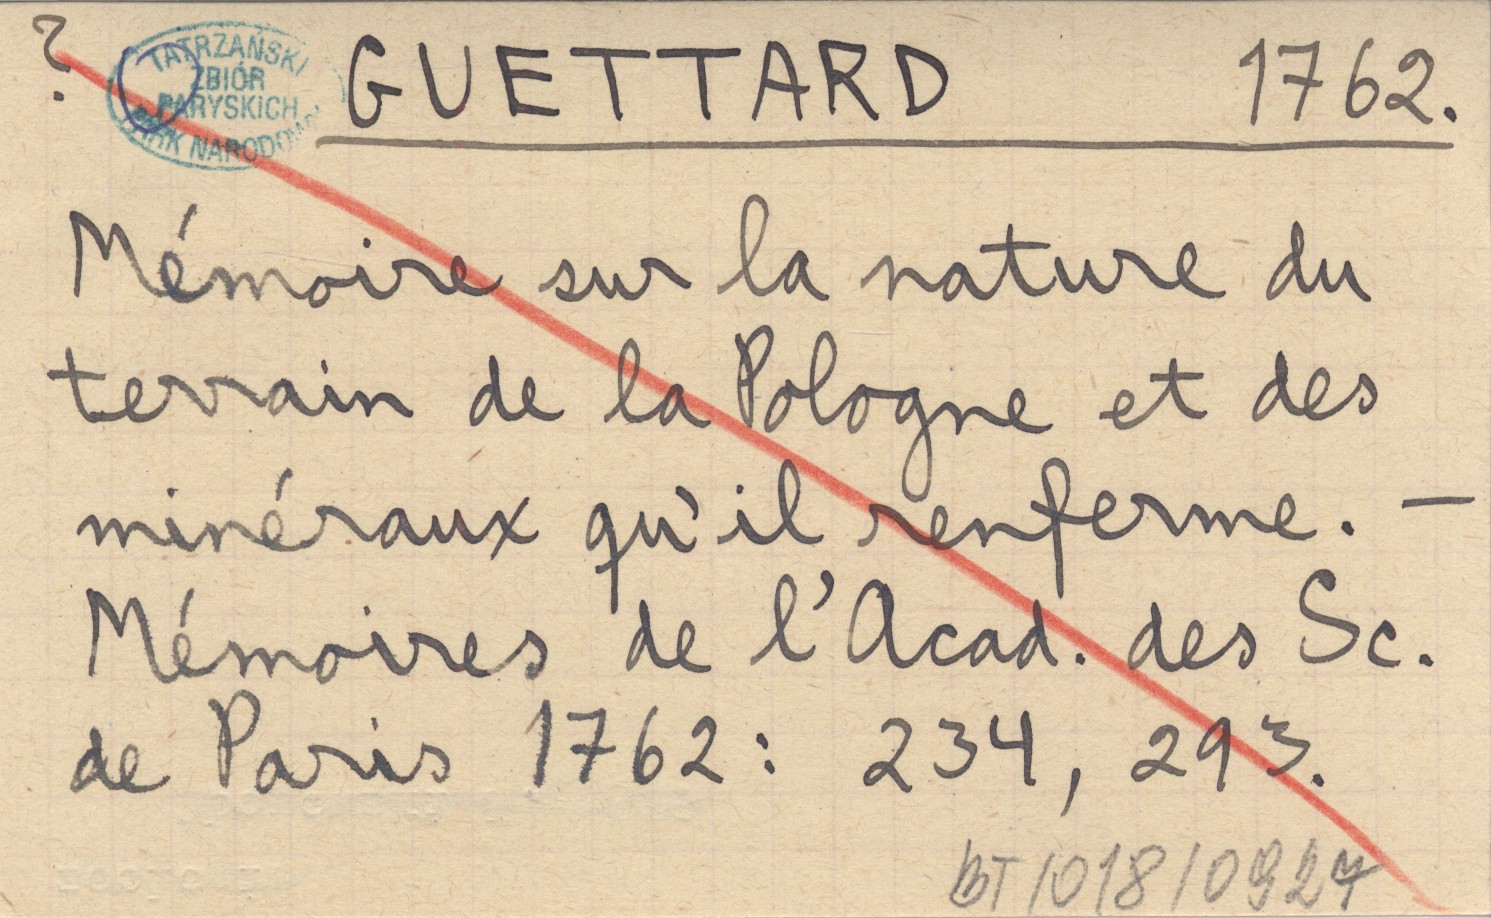 ?
TATRZAŃSKI
ZBIÓR
PARYSKICH
PARK NARODOWY
GUETTARD 1762.
Mémoire sur la nature du
terrain de la Pologne et des
minéraux qu'il renferme. —
Mémoires de l'Acad. des Sc.
de Paris 1762: 234, 293.
BT/018/0927